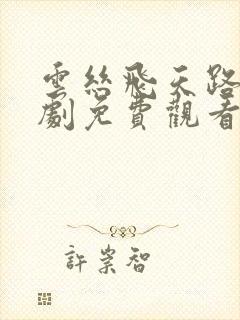 雲絲飛天路
劇免費觀看
許崇智